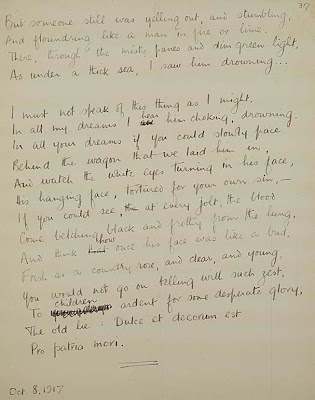 317
But someone still was yelling out, and stumbling,
And floundring like a man in fire or lime.
There, through the misty panes and dim green light,
As under a thick sea, I saw him drowning...
I must not speak of this thing as I might.
In all my dreams I hear him choking, drowning.
In all your dreams if you could slowly pace
Behind the wagon that we laid him in,
And watch the white eyes turning in his face,
His hanging face, tortured for your own sin,—
If you could see, at every jolt, the blood
Come belching black and frothy from the lung,
And think how once his face was like a bud,
Fresh as a country rose, and clear, and young,
You would not go on telling with such zest,
To children ardent for some desperate glory,
The old lie: Dulce et decorum est
Pro patria mori.
Oct. 8. 1917